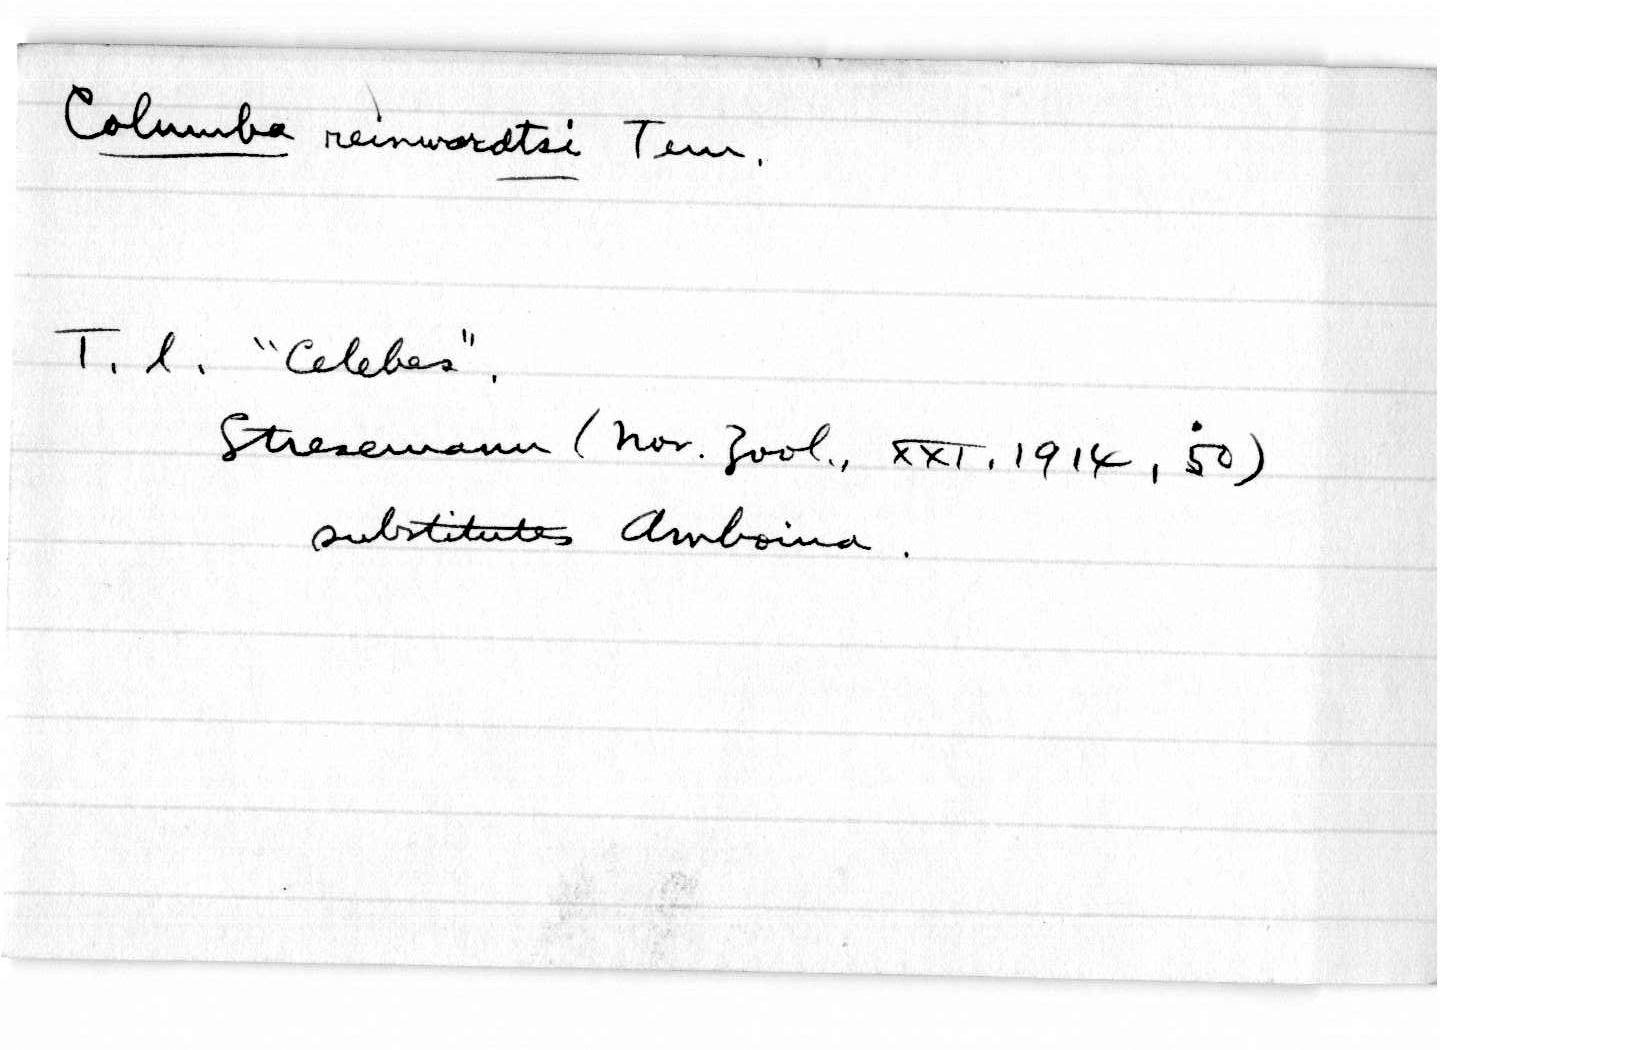 Columba reinwardtsi Tem.
T. l. "Celebes".
Stresemann (Nov. Zool., XXI, 1914, 50)
substitutes Amboina.